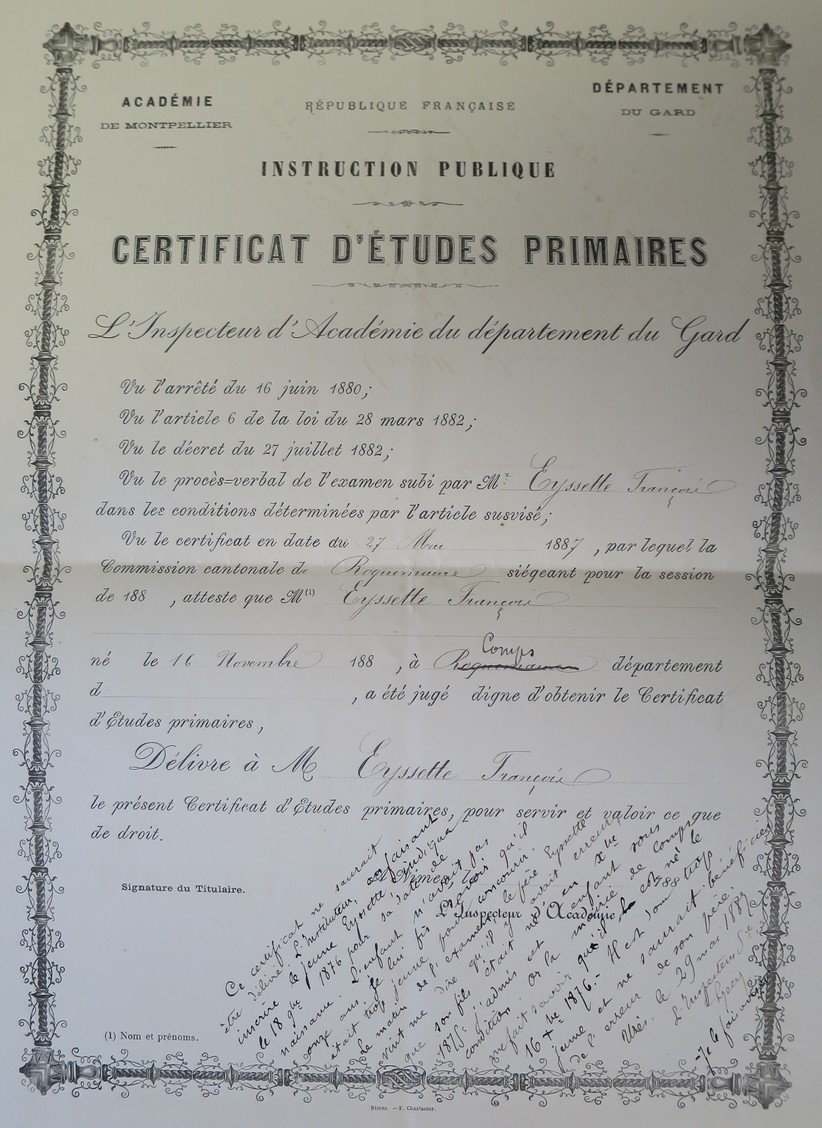 ACADÉMIE
DE MONTPELLIER
RÉPUBLIQUE FRANÇAISE
DÉPARTEMENT
DU GARD
INSTRUCTION PUBLIQUE
CERTIFICAT D'ÉTUDES PRIMAIRES
L'Inspecteur d'Académie du département du Gard
Vu l'arrêté du 16 juin 1880;
Vu l'article 6 de la loi du 28 mars 1882;
Vu le décret du 27 juillet 1882;
Vu le procès=verbal de l'examen subi par Mr Eyssette François
dans les conditions déterminées par l'article susvisé;
Vu le certificat en date du 27 Mai 1887, par lequel la
Commission cantonale de Roquemaure siégeant pour la session
de 188 , atteste que M(1) Eyssette François
Comps
né le 16 Novembre 188 , à Roquemaure département
d , a été jugé digne d'obtenir le Certificat
d'Etudes primaires,
Délivre à M Eyssette François
le présent Certificat d'Etudes primaires, pour servir et valoir ce que
de droit.
Nîmes, le 188
Signature du Titulaire.
L'Inspecteur d'Académie
Ce certificat ne saurait
être délivré. L'Instituteur, en faisant
inscrire le jeune Eyssette
le 18 1876 pour sa date de
naissance. L'enfant n'avait pas
onze ans. Je lui fis savoir qu'il
était trop jeune pour concourir.
Le matin de l'examen le père Eyssette
vint me dire qu'il y avait erreur
que son fils était né en
1875. J'admis cet enfant sous
condition. Or la mairie de Comps
me fait savoir qu'il est né le
16 1876. Il est donc trop
jeune et ne saurait bénéficier
de l'erreur de son père.
Uzès, le 29 mai 1887
L'Inspecteur
(1) Nom et prénoms.
Nîmes. — F. Chastanier.